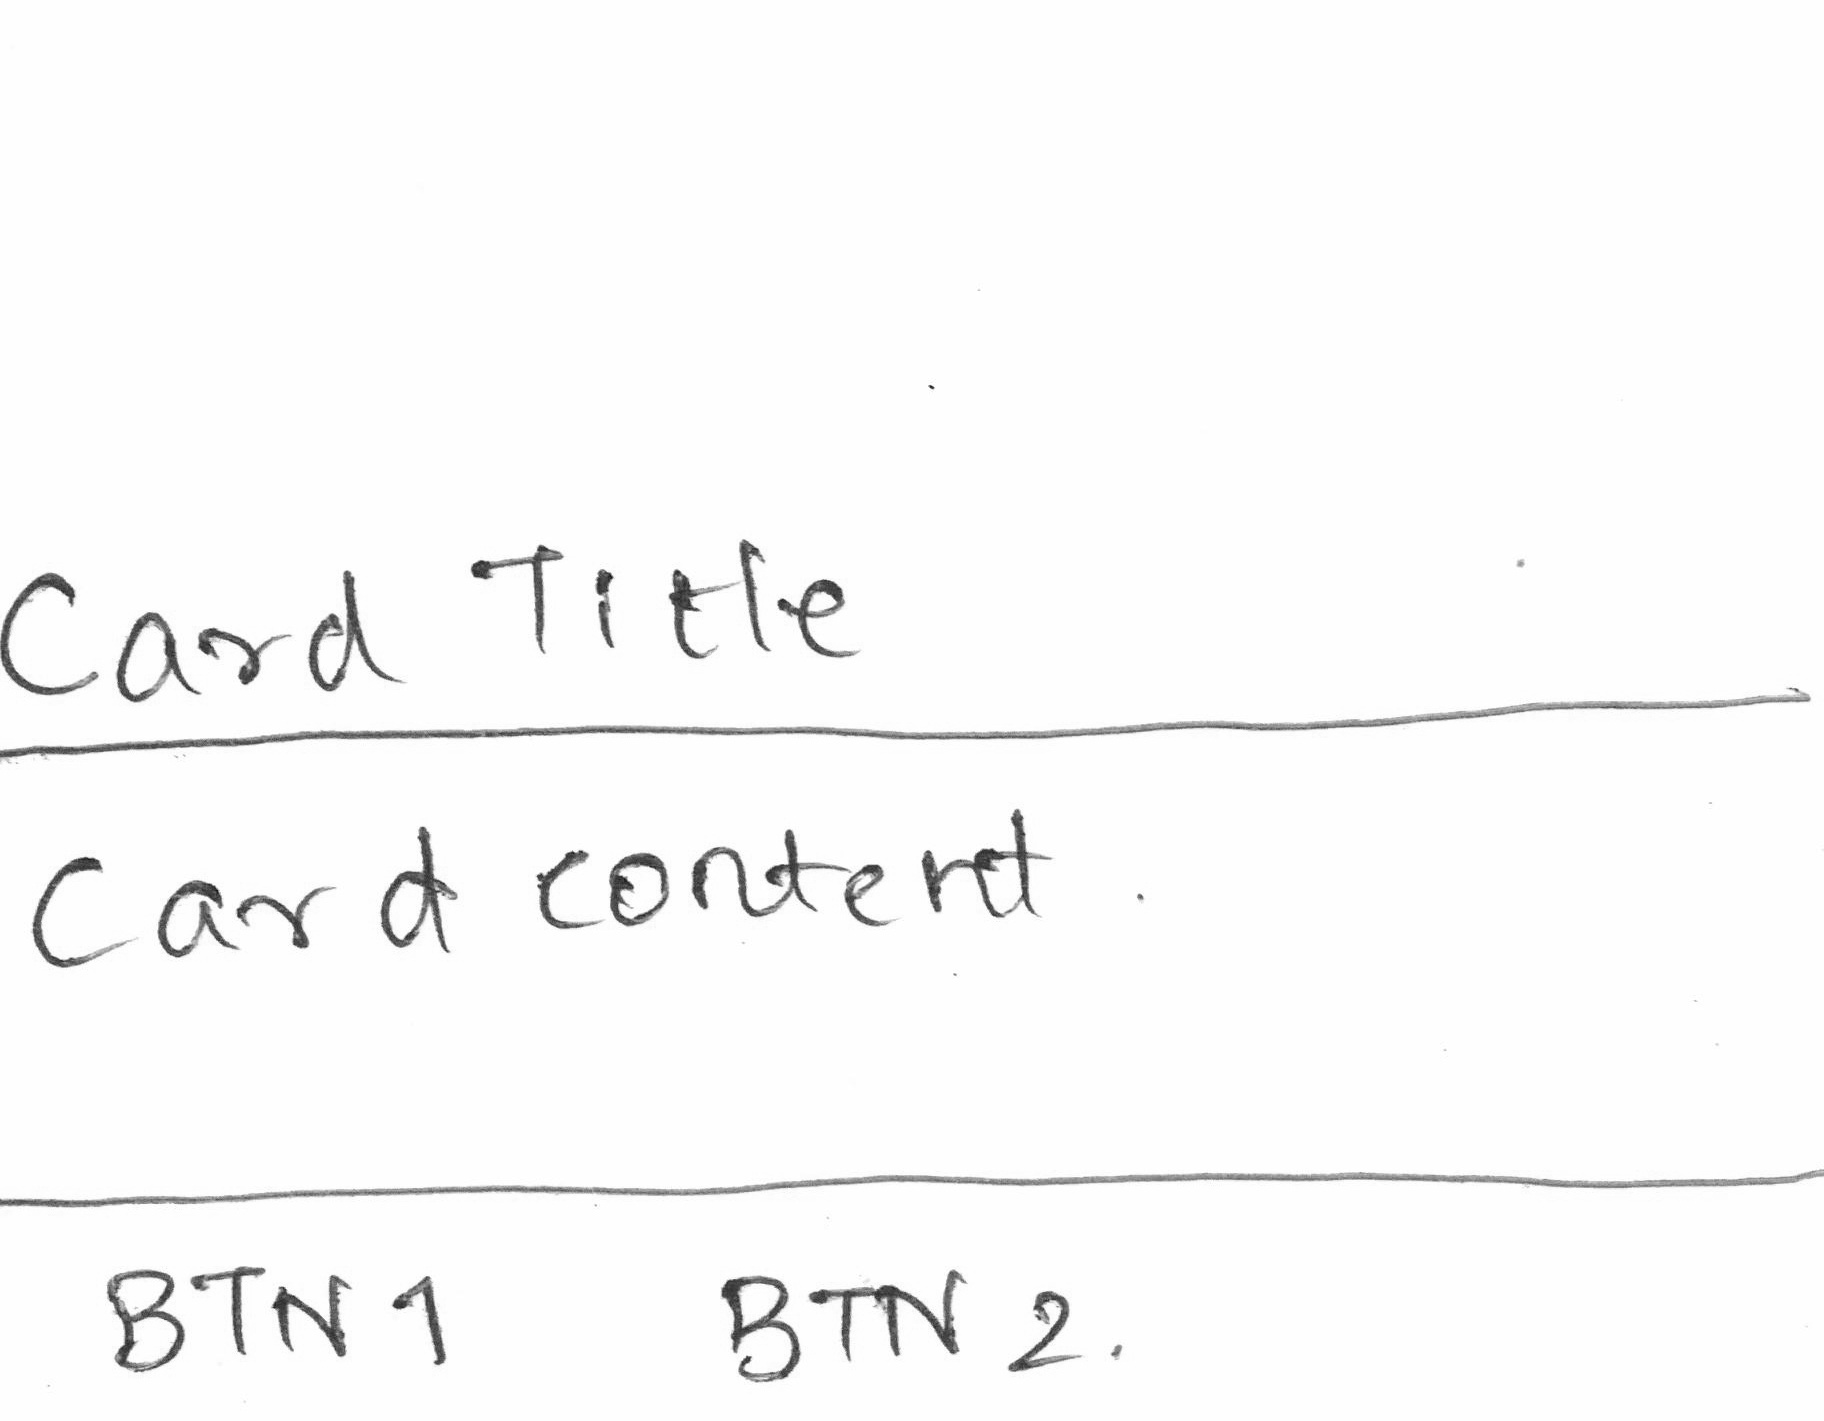 Card Title
Card content.
BTN 1 BTN 2.